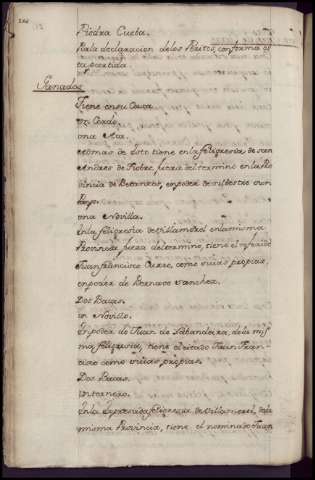 Piedra Cueba.
Por la declaracion de los Peritos, conforma es
ta partida.
Ganados
Tiene en su Casa
un Cerdo.
una Aca.
Ademas de esto tiene en la feligresia de san
Andres de fuera del termino en la Pro
vincia de Betanzos, en poder de
una Novilla.
En la feligresia de Villamateel en la misma
Provincia fuera del termino, tiene el expresado
Juan francisco como vidas propias,
en poder de Bernavé sanchez.
Dos Bacas.
un Novillo.
En poder de Juan de Labandeira, de la mis
ma feligresia, tiene el citado Juan Fran
cisco como vidas propias.
Dos Bacas.
un ternero.
En la expresada feligresia de de la
misma Provincia, tiene el nominado Juan